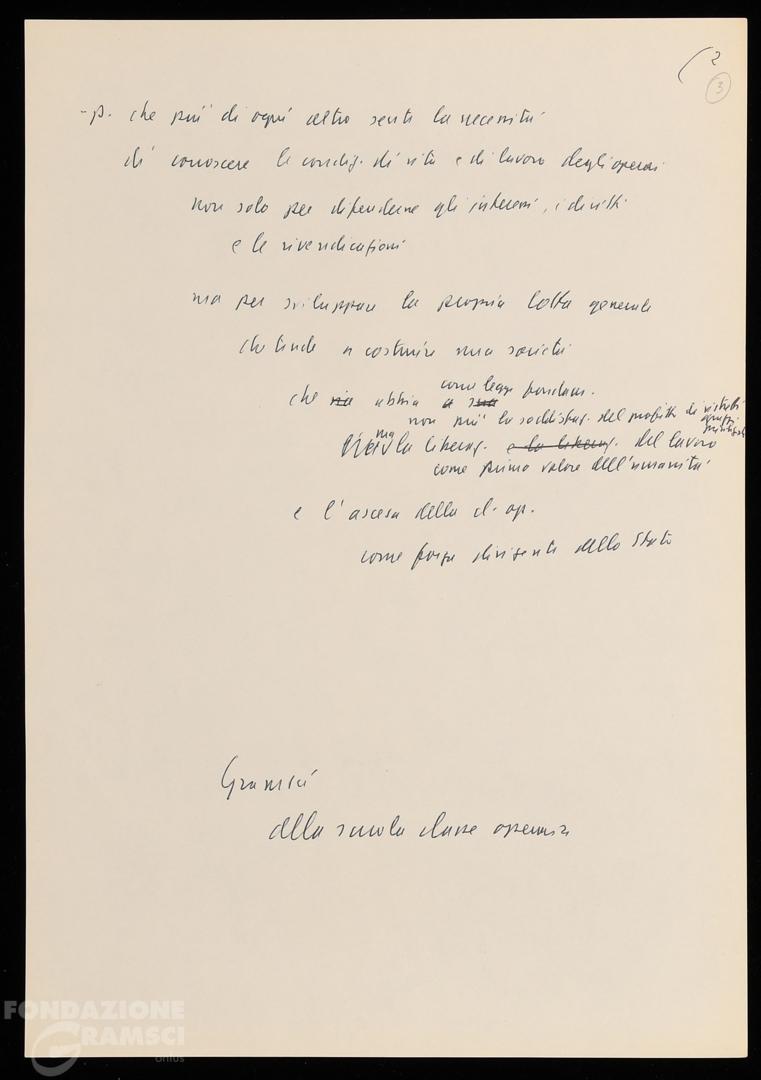 2
3
- p. che più di ogni altro sente la necessità
di conoscere le condiz. di vita e di lavoro degli operai
non solo per difenderne gli interessi, i diritti
e le rivendicazioni
ma per sviluppare la propria lotta generale
che tende a costruire una società
che sia abbia come legge fondam.
non più la soddisfaz. del profitto di ristretti gruppi privilegiati
ma la liberaz. e la liberaz. del lavoro
come primo valore dell'umanità
e l'ascesa della cl. op.
come forza dirigente dello Stato
Gramsci
alla scuola classe operaia
FONDAZIONE
GRAMSCI
onlus